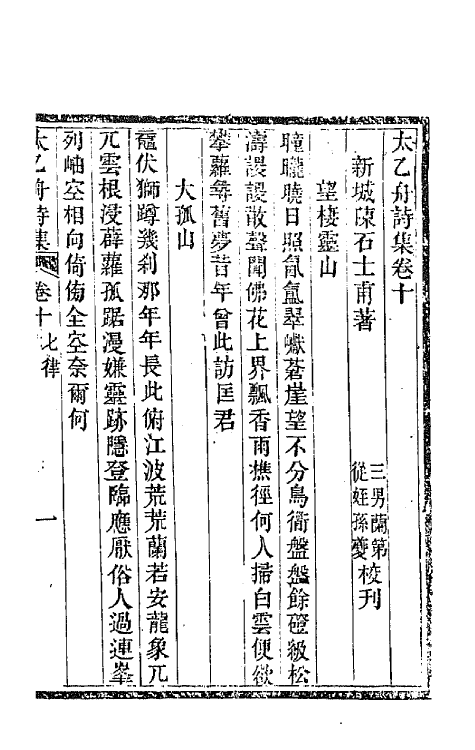 太乙舟詩集卷十
新城陳石士甫著
三男蘭第
從姪孫夔
校刊
望棲靈山
曈曨曉日照氤氳翠巘蒼崖望不分鳥衜盤盤餘磴級松
濤謖謖散聲聞佛花上界飄香雨樵徑何人掃白雲便欲
攀蘿尋舊夢昔年曾此訪匡君
大孤山
龍伏獅蹲幾剎那年年長此俯江波荒荒蘭若安龍象兀
兀雲根浸薜蘿孤踞漫嫌靈跡隱登臨應厭俗人過連峯
列岫空相向倚徧全空奈爾何
太乙舟詩集
卷十
七律
一